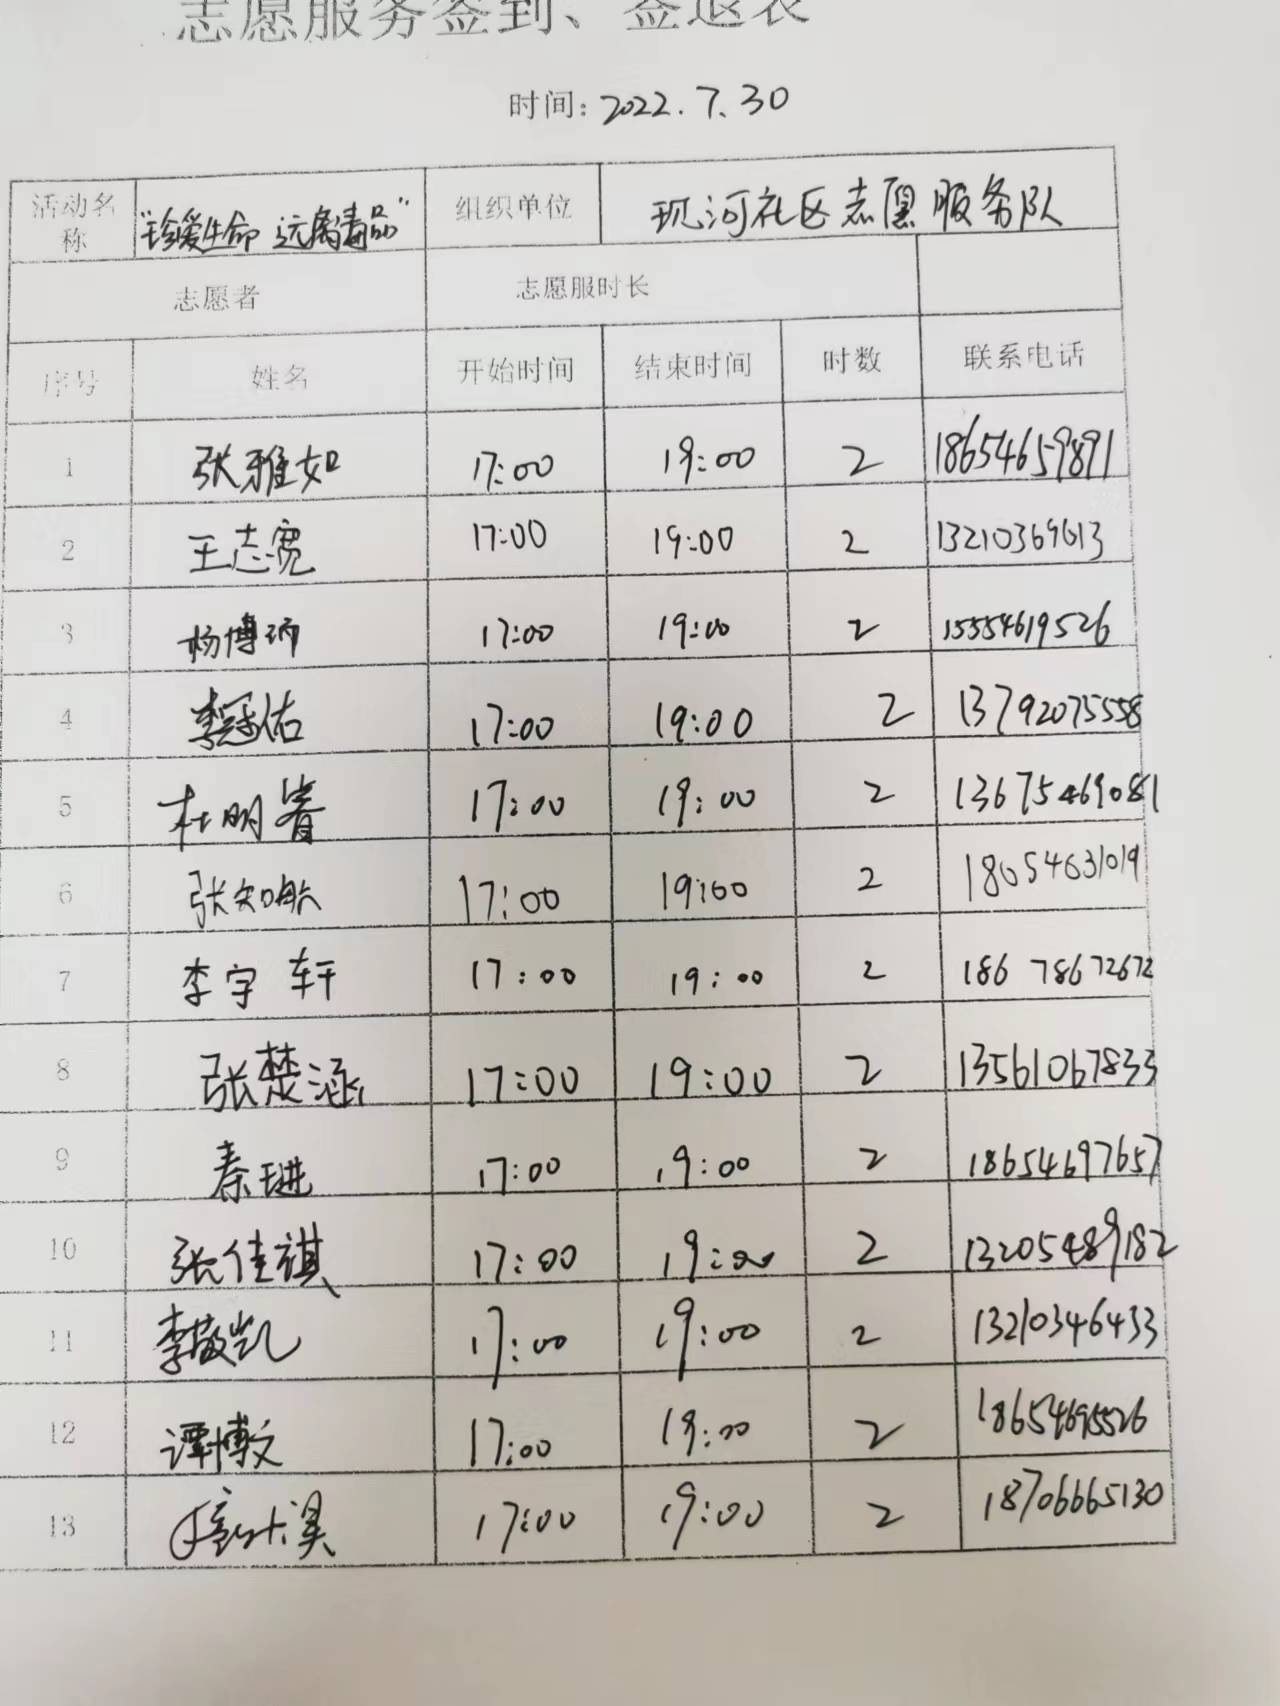 志愿服务签到、签退表
时间: 2022.7.30
活动名称 "珍爱生命 远离毒品" 组织单位 玑河社区志愿服务队
志愿者 志愿服时长
序号 姓名 开始时间 结束时间 时数 联系电话
1 张雅如 17:00 19:00 2 18654659891
2 王志宽 17:00 19:00 2 13210369613
3 杨博 17:00 19:00 2 15554619526
4 李冠佑 17:00 19:00 2 13792075558
5 杜明 17:00 19:00 2 13675469081
6 张知航 17:00 19:00 2 18654631019
7 李宇轩 17:00 19:00 2 186 78672672
8 张楚涵 17:00 19:00 2 13561067833
9 秦琎 17:00 19:00 2 18654697657
10 张佳祺 17:00 19:00 2 13205489182
11 李敬凯 17:00 19:00 2 13210346433
12 谭博文 17:00 19:00 2 18654695526
13 17:00 19:00 2 18706665130